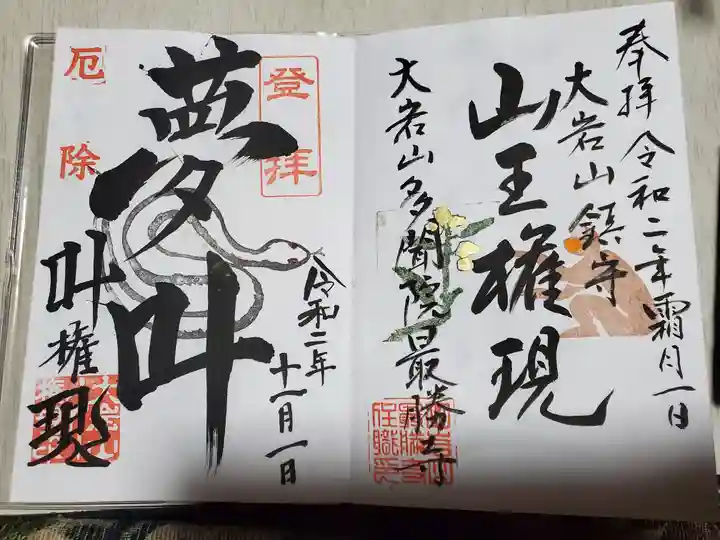 奉拝 令和二年霜月一日
大岩山鎮守
山王権現
大岩山多聞院最勝寺
登拝
令和二年
十一月一日
夢叶
厄除
叶権現